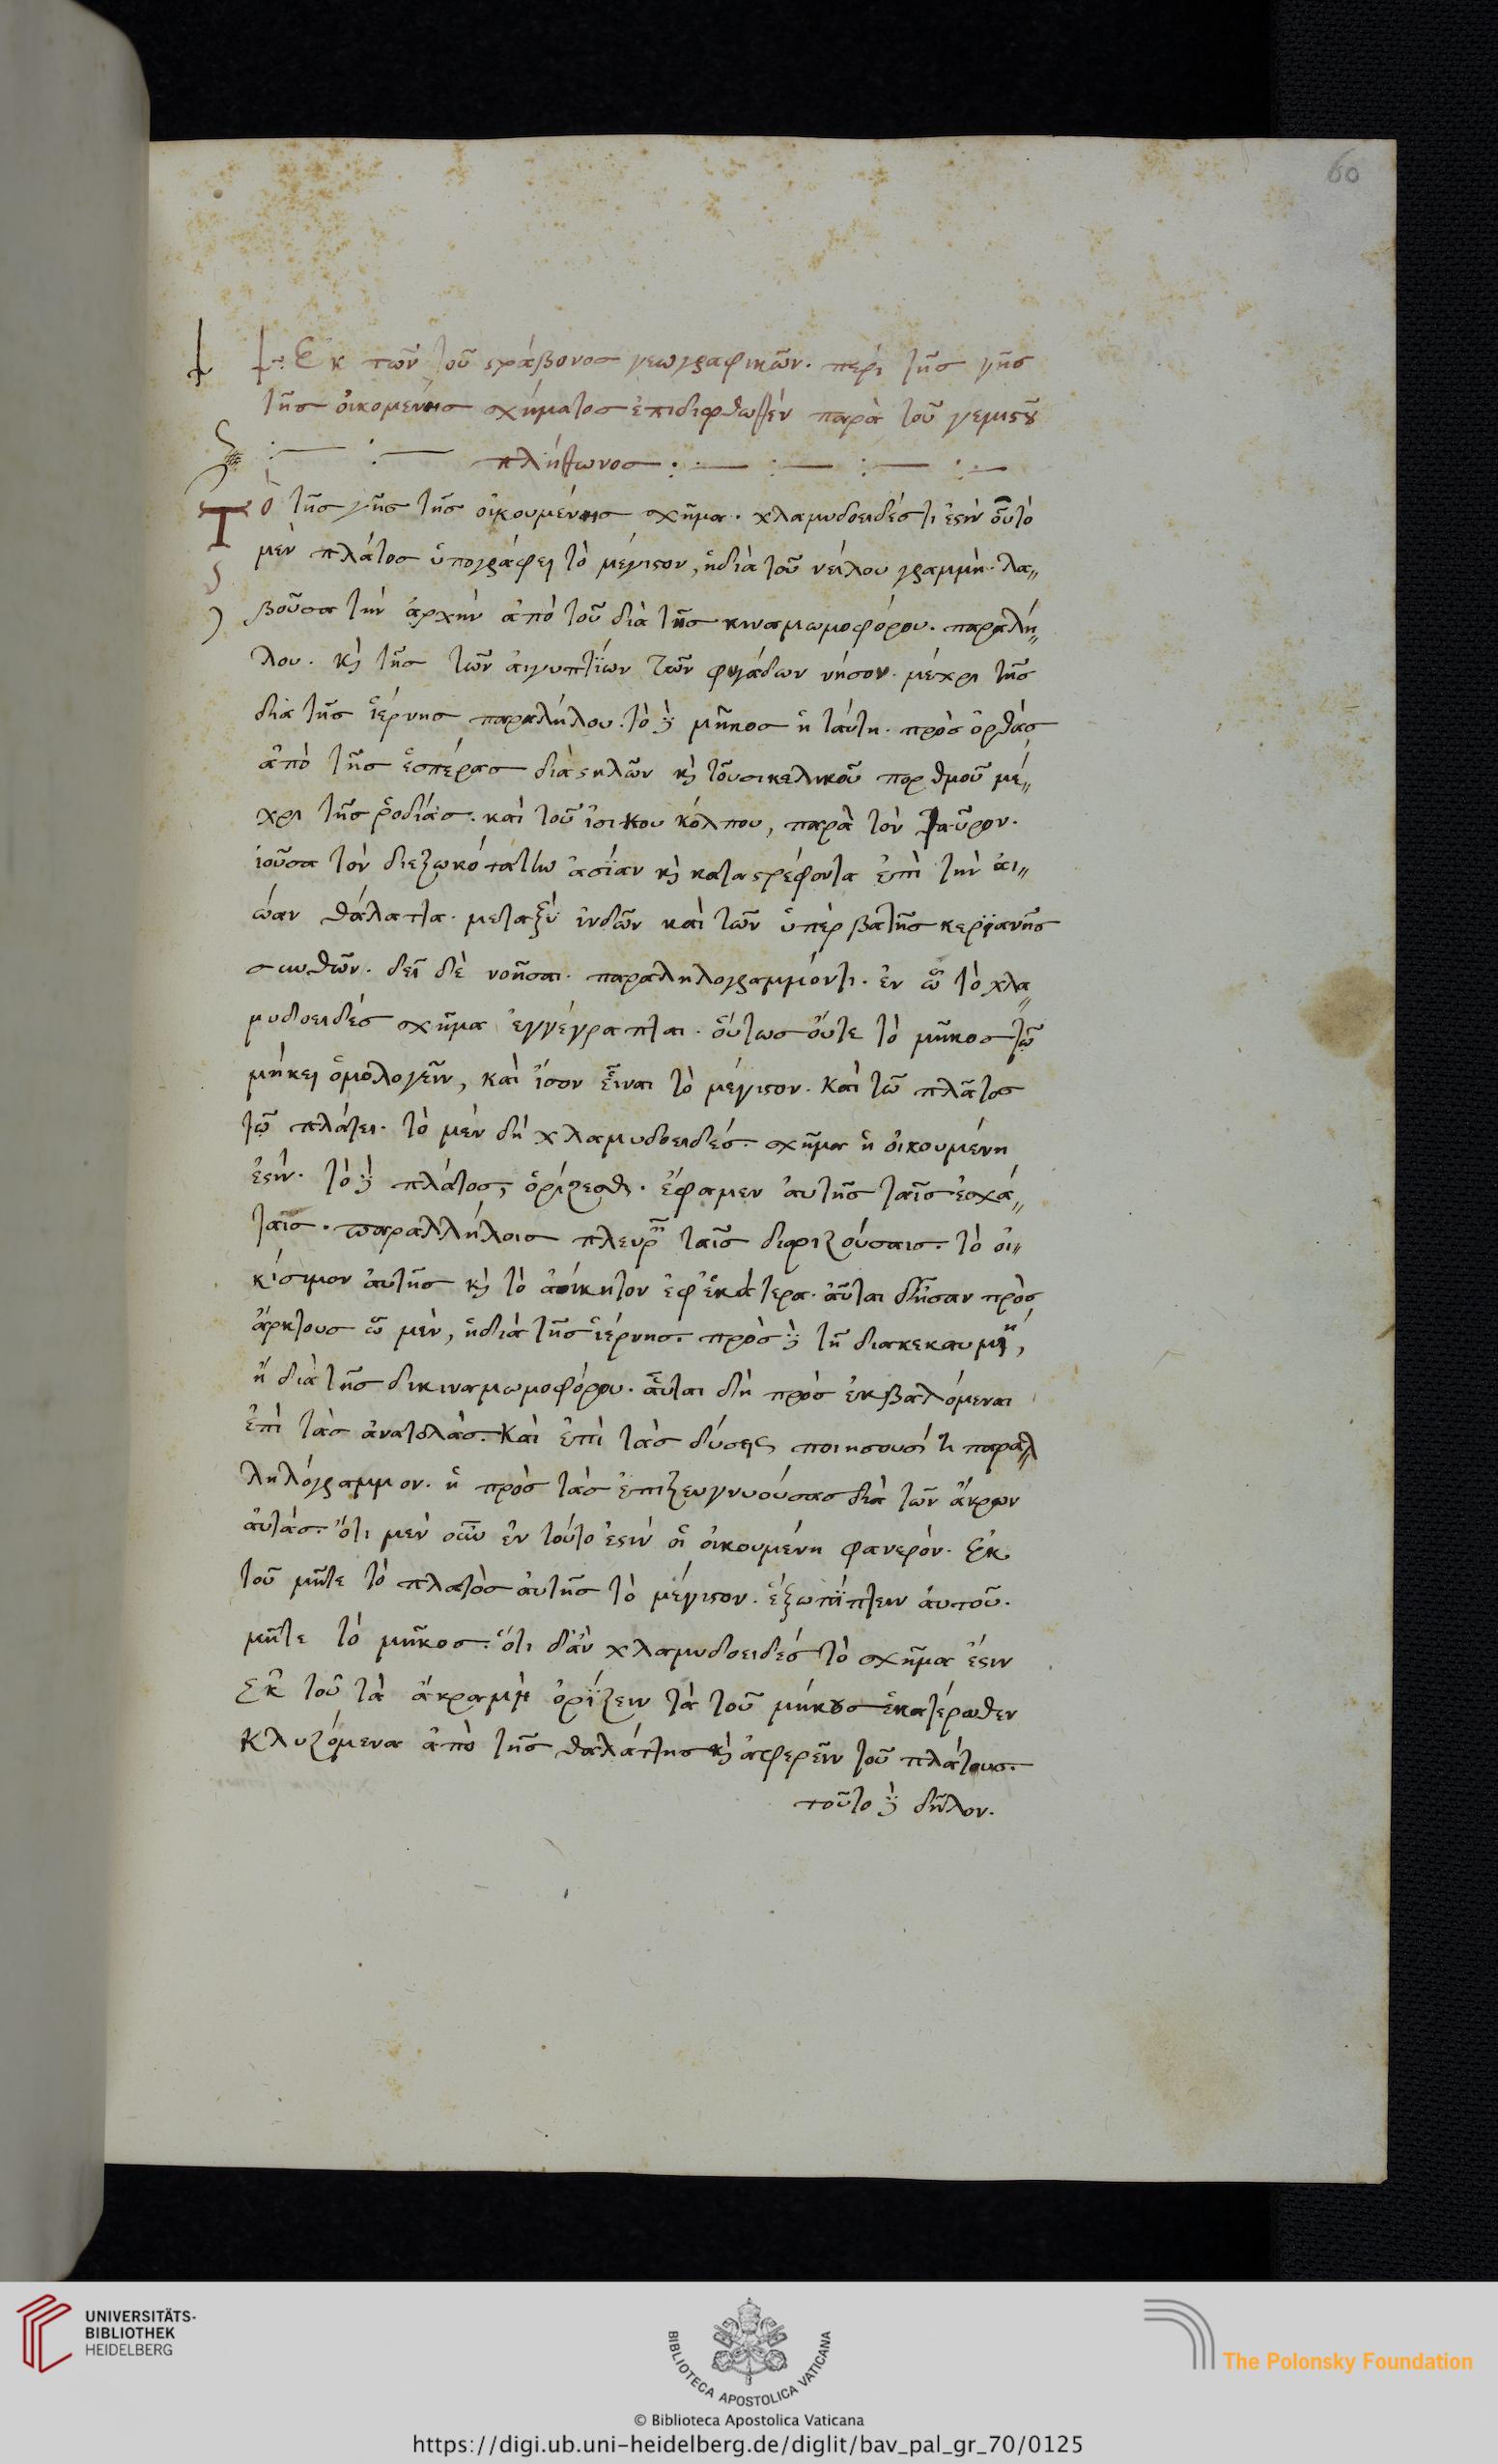 60
Ἐκ τῶν τοῦ στράβονος γεωγραφικῶν. περὶ τῆς γῆς
τῆς οἰκομένης σχήματος ἐπιδιορθωθὲν παρὰ τοῦ γεμιστοῦ
πλήθωνος
Τὸ τῆς γῆς τῆς οἰκουμένης σχῆμα. χλαμυδοειδές τι ἐστὶν οὗ τὸ
μὲν πλάτος ὑπογράφει τὸ μέγιστον, ἡ διὰ τοῦ νείλου γραμμὴ. λα〃
βοῦσα τὴν ἀρχὴν ἀπὸ τοῦ διὰ τῆς κιναμωμοφόρου. παραλή〃
λου. κ̀ τῆς τῶν αἰγυπτΐων τῶν φυγάδων νήσου. μέχρι τῆς
διὰ τῆς ἱέρνης παραλήλου. τὸ δὲ μῆκος ἡ ταύτη. πρὸς ὀρθὰς
ἀπὸ τῆς ἑσπέρας διὰ στηλῶν κ̀ τοῦ σικελικοῦ πορθμοῦ μέ〃
χρι τῆς ῥοδίας. καὶ τοῦ ἰσικου κόλπου, παρὰ τὸν ταῦρον.
ἰοῦσα τὸν διεζωκότα τὴν ἀσΐαν κ̀ καταστρέφοντα ἐπὶ τὴν ἀι〃
ώαν θάλατταν. μεταξὺ ἰνδῶν καὶ τῶν ὑπὲρ βατῆς κερϊανῆς
σκυθῶν. δεῖ δὲ νοῆσαι. παραληλογραμμόν τι. ἐν ὧ τὸ χλα〃
μυδοειδὲς σχῆμα ἐγγέγραπται. οὕτως ὅυτε τὸ μῆκος τῶ
μήκει ὁμολογεῖν, καὶ ἴσον εἶναι τὸ μέγιστον. καὶ τῶ πλᾶτος
τῶ πλάτει. τὸ μὲν δὴ χλαμυδοειδὲς. σχῆμα ἡ οἰκουμένη
ἐστὶν. τὸ δὲ πλάτος, ὁρίζεσθαι. ἔφαμεν ἀυτῆς ταῖς ἐσχά〃
ταις. παραλλήλοις πλευρ ταῖς διοριζούσαις. τὸ οἰ〃
κίσιμον ἀυτῆς κ̀ τὸ ἀοίκητον ἐφ' ἑκάτερα. αὗται δ' ἦσαν πρὸς
ἄρκτους ὧ μὲν, ἡ διὰ τῆς ἱέρνης. πρὸς δὲ τῆ διακεκαυμένη,
ἡ διὰ τῆς δικιναμωμοφόρου. αὗται δὴ πρὸς ἐκβαλόμεναι
ἐπὶ τὰς ἀνατολὰς. καὶ ἐπὶ τὰς δύσεις ποιησουσί τι παραλ〃
ληλόγραμμον. ἡ πρὸς τὰς ἐπιζευγνυούσας διὰ τῶν ἄκρων
ἀυτάς. ὅτι μὲν οὖν ἐν τούτο ἐστὶν οἱ οἰκουμένη φανερὸν. ἐκ
τοῦ μῆτε τὸ πλατὸς ἀυτῆς τὸ μέγιστον. ἔξω πΐπτειν ἀυτοῦ.
μῆτε τὸ μῆκος. ὅτι δ' ἂν χλαμυδοειδὲς τὸ σχῆμα ἐστιν
ἐκ τοῦ τὰ ἄκρα μὴ ὀρΐζειν τὰ τοῦ μήκους ἑκατέρωθεν
κλυζόμενα ἀπὸ τῆς θαλάττης κ̀ ἀφερεῖν τοῦ πλάτους.
τοῦτο δὲ δῆλον.
UNIVERSITÄTS-
BIBLIOTHEK
HEIDELBERG
BIBLIOTECA APOSTOLICA VATICANA
The Polonsky Foundation
© Biblioteca Apostolica Vaticana
https://digi.ub.uni-heidelberg.de/diglit/bav_pal_gr_70/0125